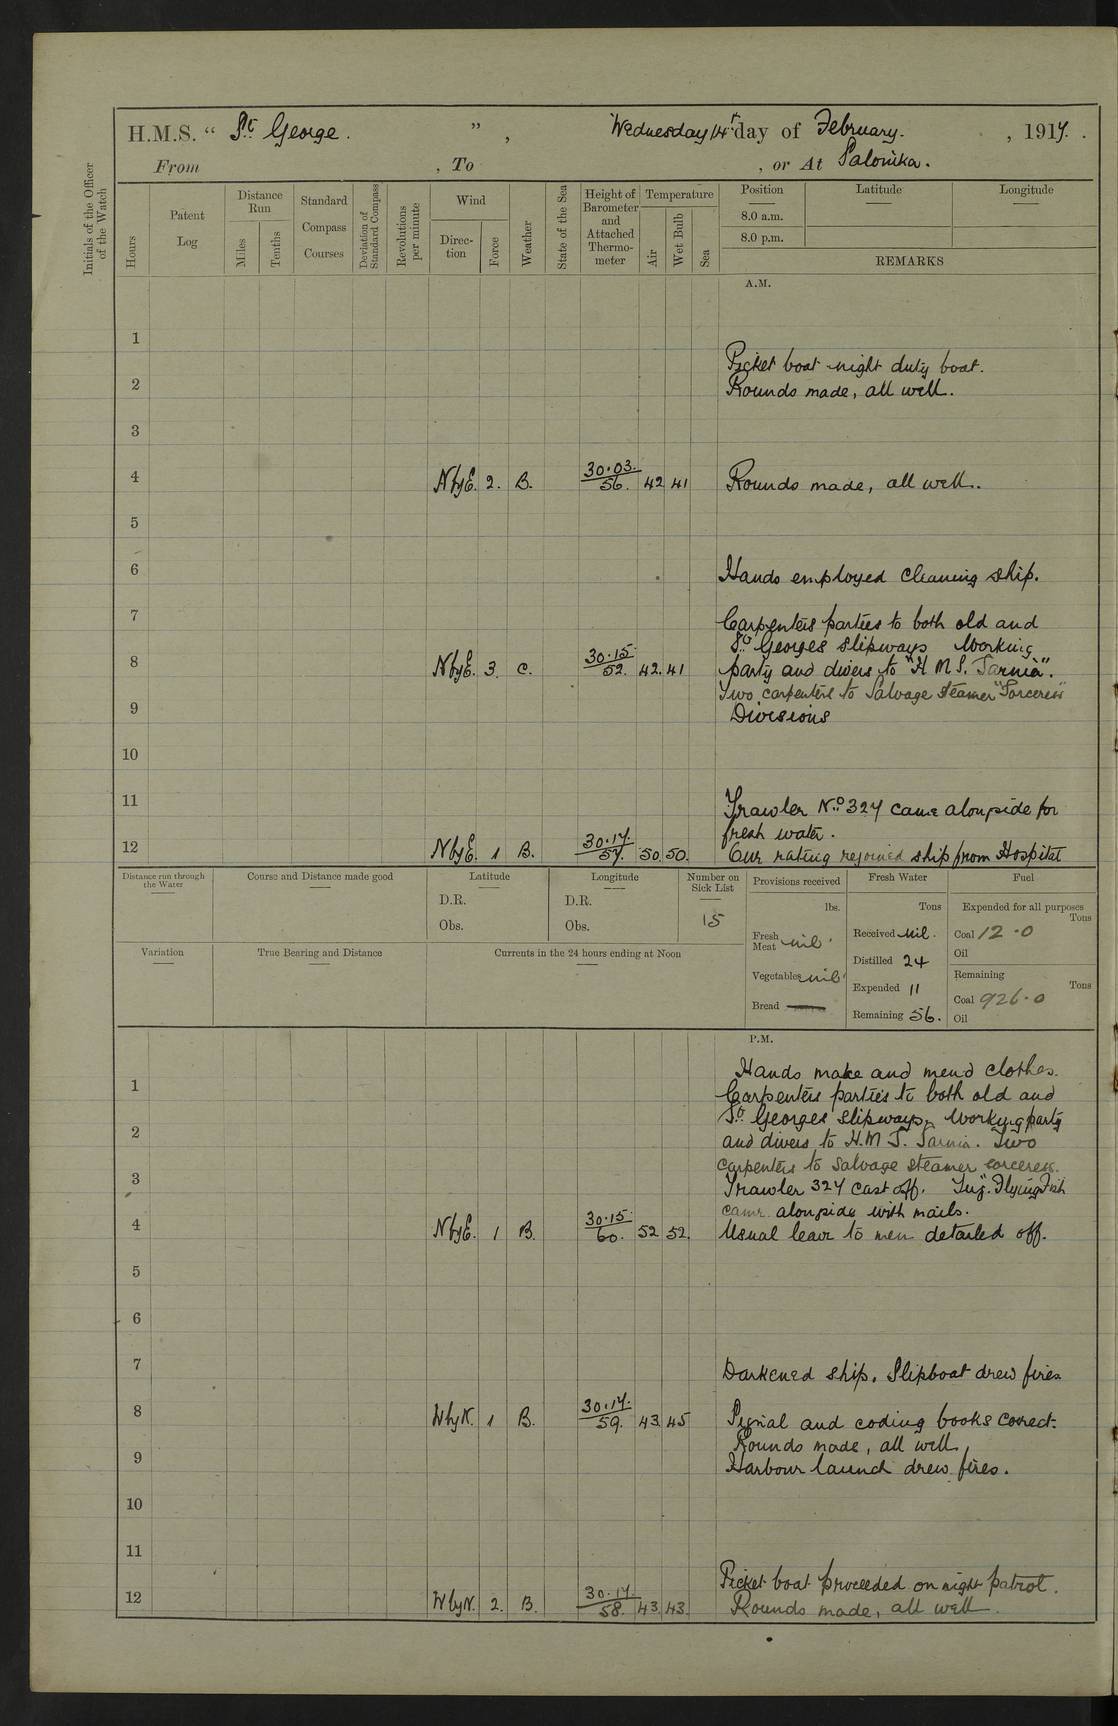 H.M.S. “ St George. ” , Wednesday 14th day of February. , 1917.
From , To , or At Salonika.
Initials of the Officer of the Watch
Hours
Patent Log
Distance Run
Miles
Tenths
Standard Compass Courses
Deviation of Standard Compass
Revolutions per minute
Wind
Direction
Force
Weather
State of the Sea
Height of Barometer and Attached Thermometer
Temperature
Air
Wet Bulb
Sea
Position Latitude Longitude
8.0 a.m.
8.0 p.m.
REMARKS
A.M.
1
Picket boat night duty boat.
2 Rounds made, all well.
3
4 N by E. 2. B. 30.03. 56. 42 41 Rounds made, all well.
5
6 Hands employed cleaning ship.
7 Carpenters parties to both old and
St Georges slipways Working
8 N by E. 3. C. 30.15 52. 42. 41 party and divers to "H M S. Sarnia".
Two carpenters to Salvage steamer "Sorceress"
9 Divisions
10
11 Trawler No 327 came alongside for
fresh water.
12 N by E. 1 B. 30.17. 57. 50. 50. One rating rejoined ship from Hospital
Distance run through the Water
Course and Distance made good
Latitude
D.R.
Obs.
Longitude
D.R.
Obs.
Number on Sick List
15
Provisions received
lbs.
Fresh Meat nil.
Vegetables nil
Bread
Fresh Water
Tons
Received Nil.
Distilled 24
Expended 11
Remaining 56.
Fuel
Expended for all purposes
Tons
Coal 12.0
Oil
Remaining
Tons
Coal 926.0
Oil
Variation
True Bearing and Distance
Currents in the 24 hours ending at Noon
P.M.
Hands make and mend clothes.
1 Carpenters parties to both old and
St Georges slipways, Working party
2 and divers to H.M S. Sarnia. Two
carpenters to salvage steamer sorceress.
3 Trawler 327 cast off. Tug "Flying Fish
came alongside with mails.
4 N by E. 1 B. 30.15 60. 52 52. Usual leave to men detailed off.
5
6
7 Darkened ship. Slipboat drew fires
8 W by N. 1 B. 30.17. 59. 43. 45 Signal and coding books correct.
Rounds made, all well.
9 Harbour launch drew fires.
10
11
Picket boat proceeded on night patrol.
12 W by N. 2. B. 30.17. 58. 43. 43. Rounds made, all well.